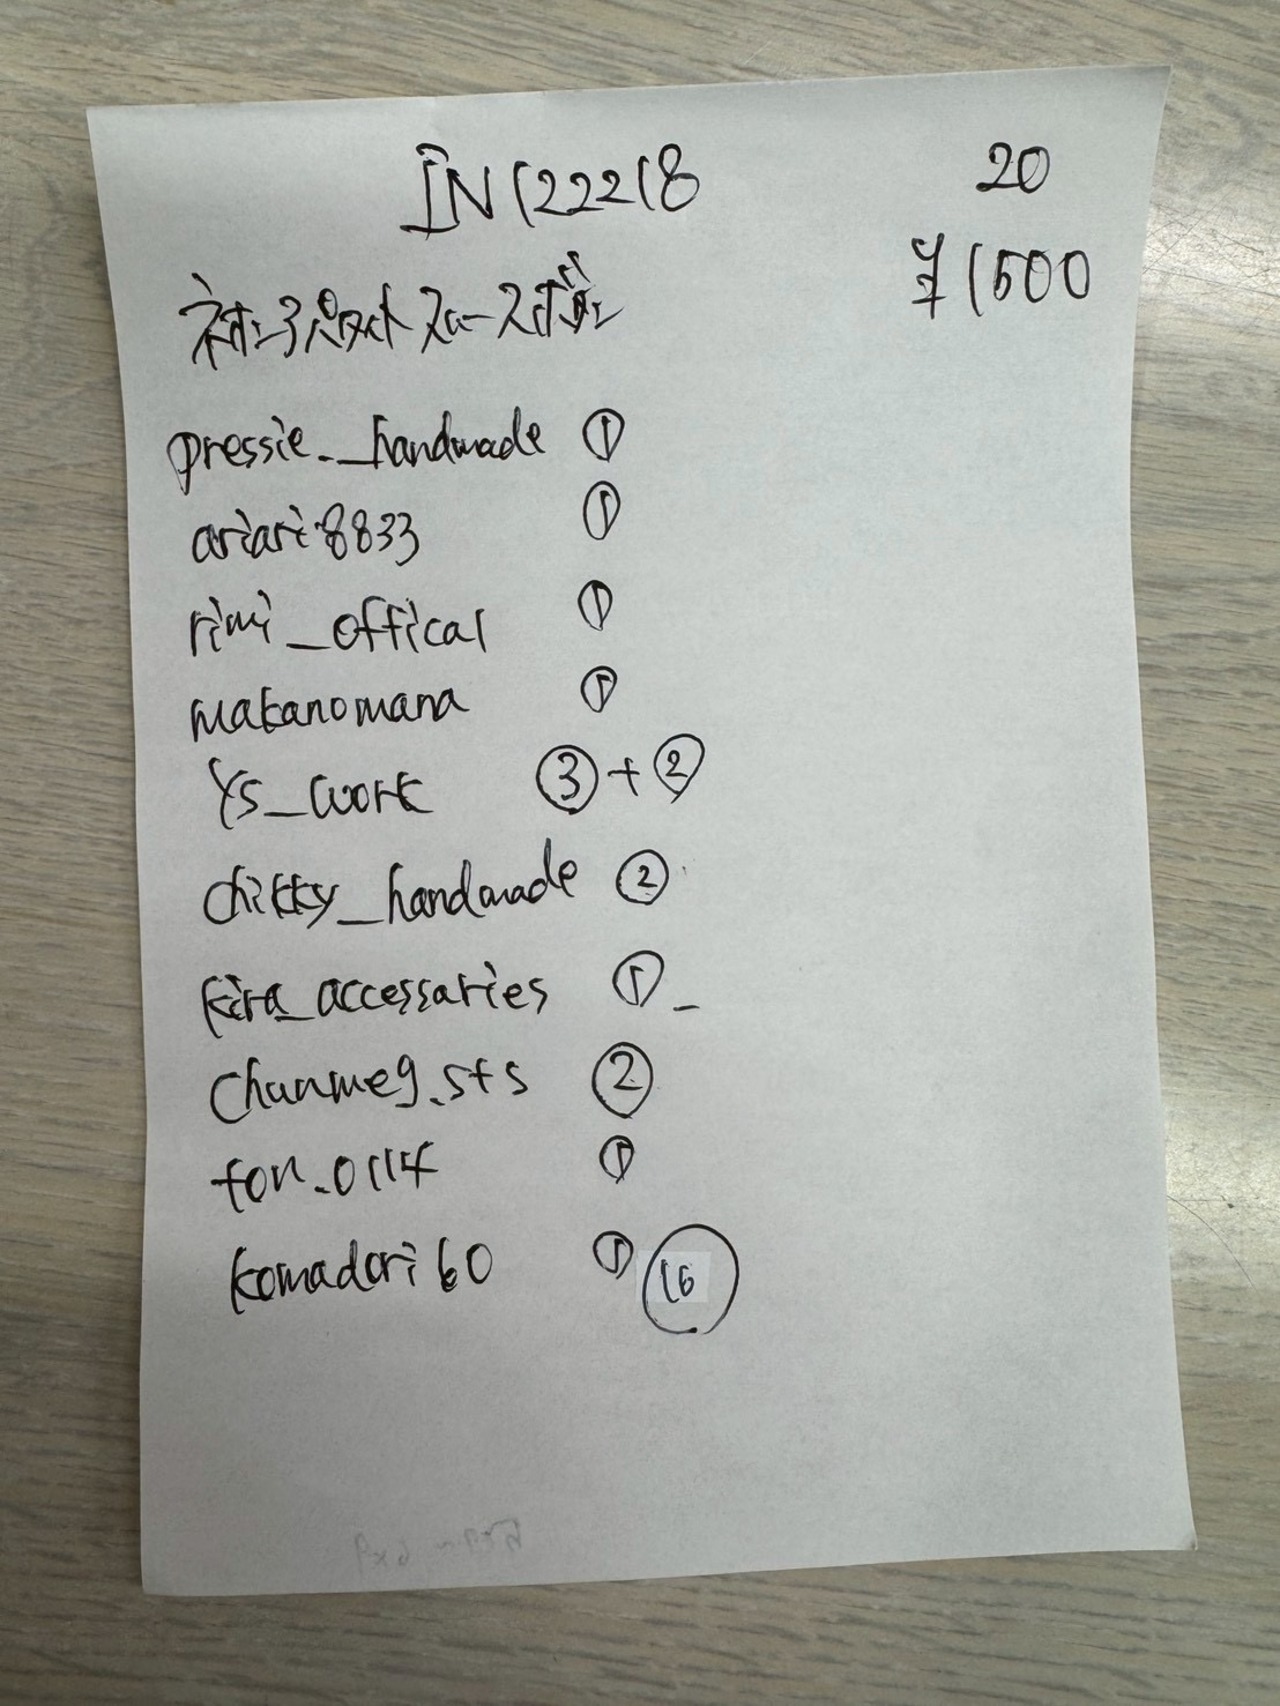 IN122218 20
¥1500
pressie._handmade ①
ariari8833 ①
rimi_offical ①
makanomana ①
Ys_work ③+②
chikky_handmade ②
kira_accessaries ①_
chunmeg.sts ②
ton.0114 ①
komadori60 ① 16